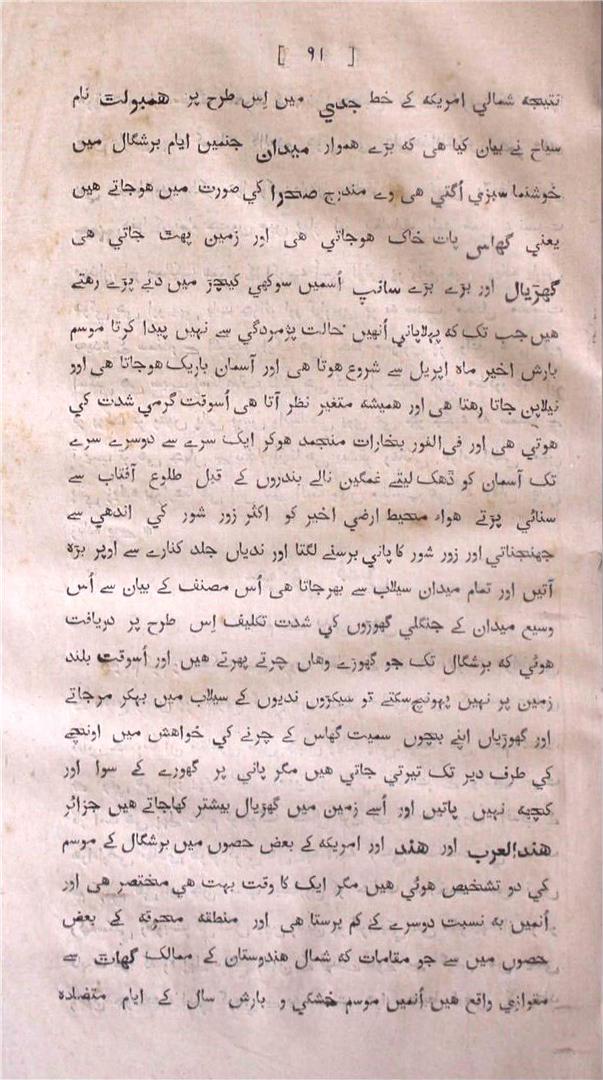 [ ٩١ ]
نتیجہ شمالي امریکہ کے خط جدي میں اِس طرح پر همبولت نام
سیاح نے بیان کیا هی کہ بڑے هموار میدان جنمیں ایام برشگال میں
خوشنما سبزي اُگتي هی وے مندرج صحرا کي صورت میں هوجاتے هیں
یعني گھاس پات خاک هوجاتي هی اور زمین پھٹ جاتي هی
گھڑیال اور بڑے بڑے سانپ اُسمیں سوکھي کیچڑ میں دبے پڑے رهتے
هیں جب تک کہ پہلاپاني اُنھیں حالت پژمردگي سے نہیں پیدا کرتا موسم
بارش اخیر ماہ اپریل سے شروع هوتا هی اور آسمان باریک هوجاتا هی اوو
نیلاپن جاتا رهتا هی اور همیشہ متغیر نظر آتا هی اُسوقت گرمي شدت کي
هوتي هی اور في الفور بخارات منجمد هوکر ایک سرے سے دوسرے سرے
تک آسمان کو ڈھک لیتے غمگین نالے بندروں کے قبل طلوع آفتاب سے
سنائي پڑتے هواء محیط ارضي اخیر کو اکثر زور شور کي اندھي سے
جھنجناتي اور زور شور کا پاني برسنے لگتا اور ندیاں جلد کنارے سے اوپر بڑہ
آتیں اور تمام میدان سیلاب سے بھرجاتا هی اُس مصنف کے بیان سے اُس
وسیع میدان کے جنگلي گھوڑوں کي شدت تکلیف اِس طرح پر دریافت
هوئي کہ برشگال تک جو گھوڑے وهاں چرتے پھرتے هیں اور اُسوقت بلند
زمین پر نہیں پہونچ سکتے تو سیکڑوں ندیوں کے سیلاب میں بہکر مرجاتے
اور گھوڑیاں اپنے بچوں سمیت گھاس کے چرنے کي خواهش میں اونچے
کي طرف دیر تک تیرتي جاتي هیں مگر پاني پر گھورے کے سوا اور
کچھہ نہیں پاتیں اور اُسے زمین میں گھڑیال بیشتر کھاجاتے هیں جزائر
هندالعرب اور هند اور امریکہ کے بعض حصوں میں برشگال کے موسم
کي دو تشخیص هوئي هیں مگر ایک کا وقت بہت هي مختصر هی اور
اُنمیں بہ نسبت دوسرے کے کم برستا هی اور منطقہ محرقہ کے بعض
حصوں میں سے جو مقامات کہ شمال هندوستان کے ممالک گھاٹ سے
متوازي واقع هیں اُنمیں موسم خشکي و بارش سال کے ایام متضادہ